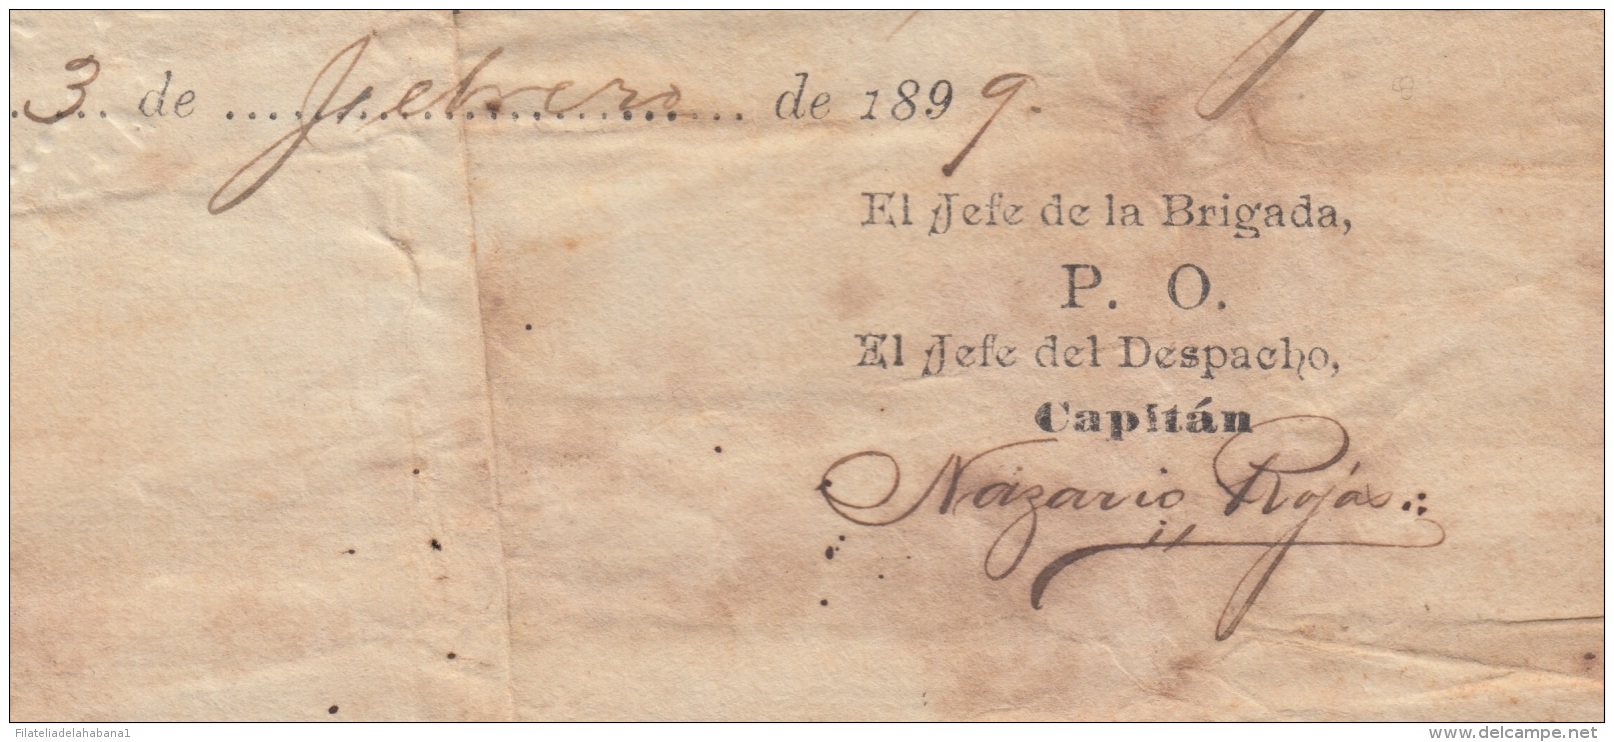 3 de Febrero de 1899.
El Jefe de la Brigada,
P. O.
El Jefe del Despacho,
Capitán
Nazario Rojas
Filateliadelahabana1
www.delcampe.net